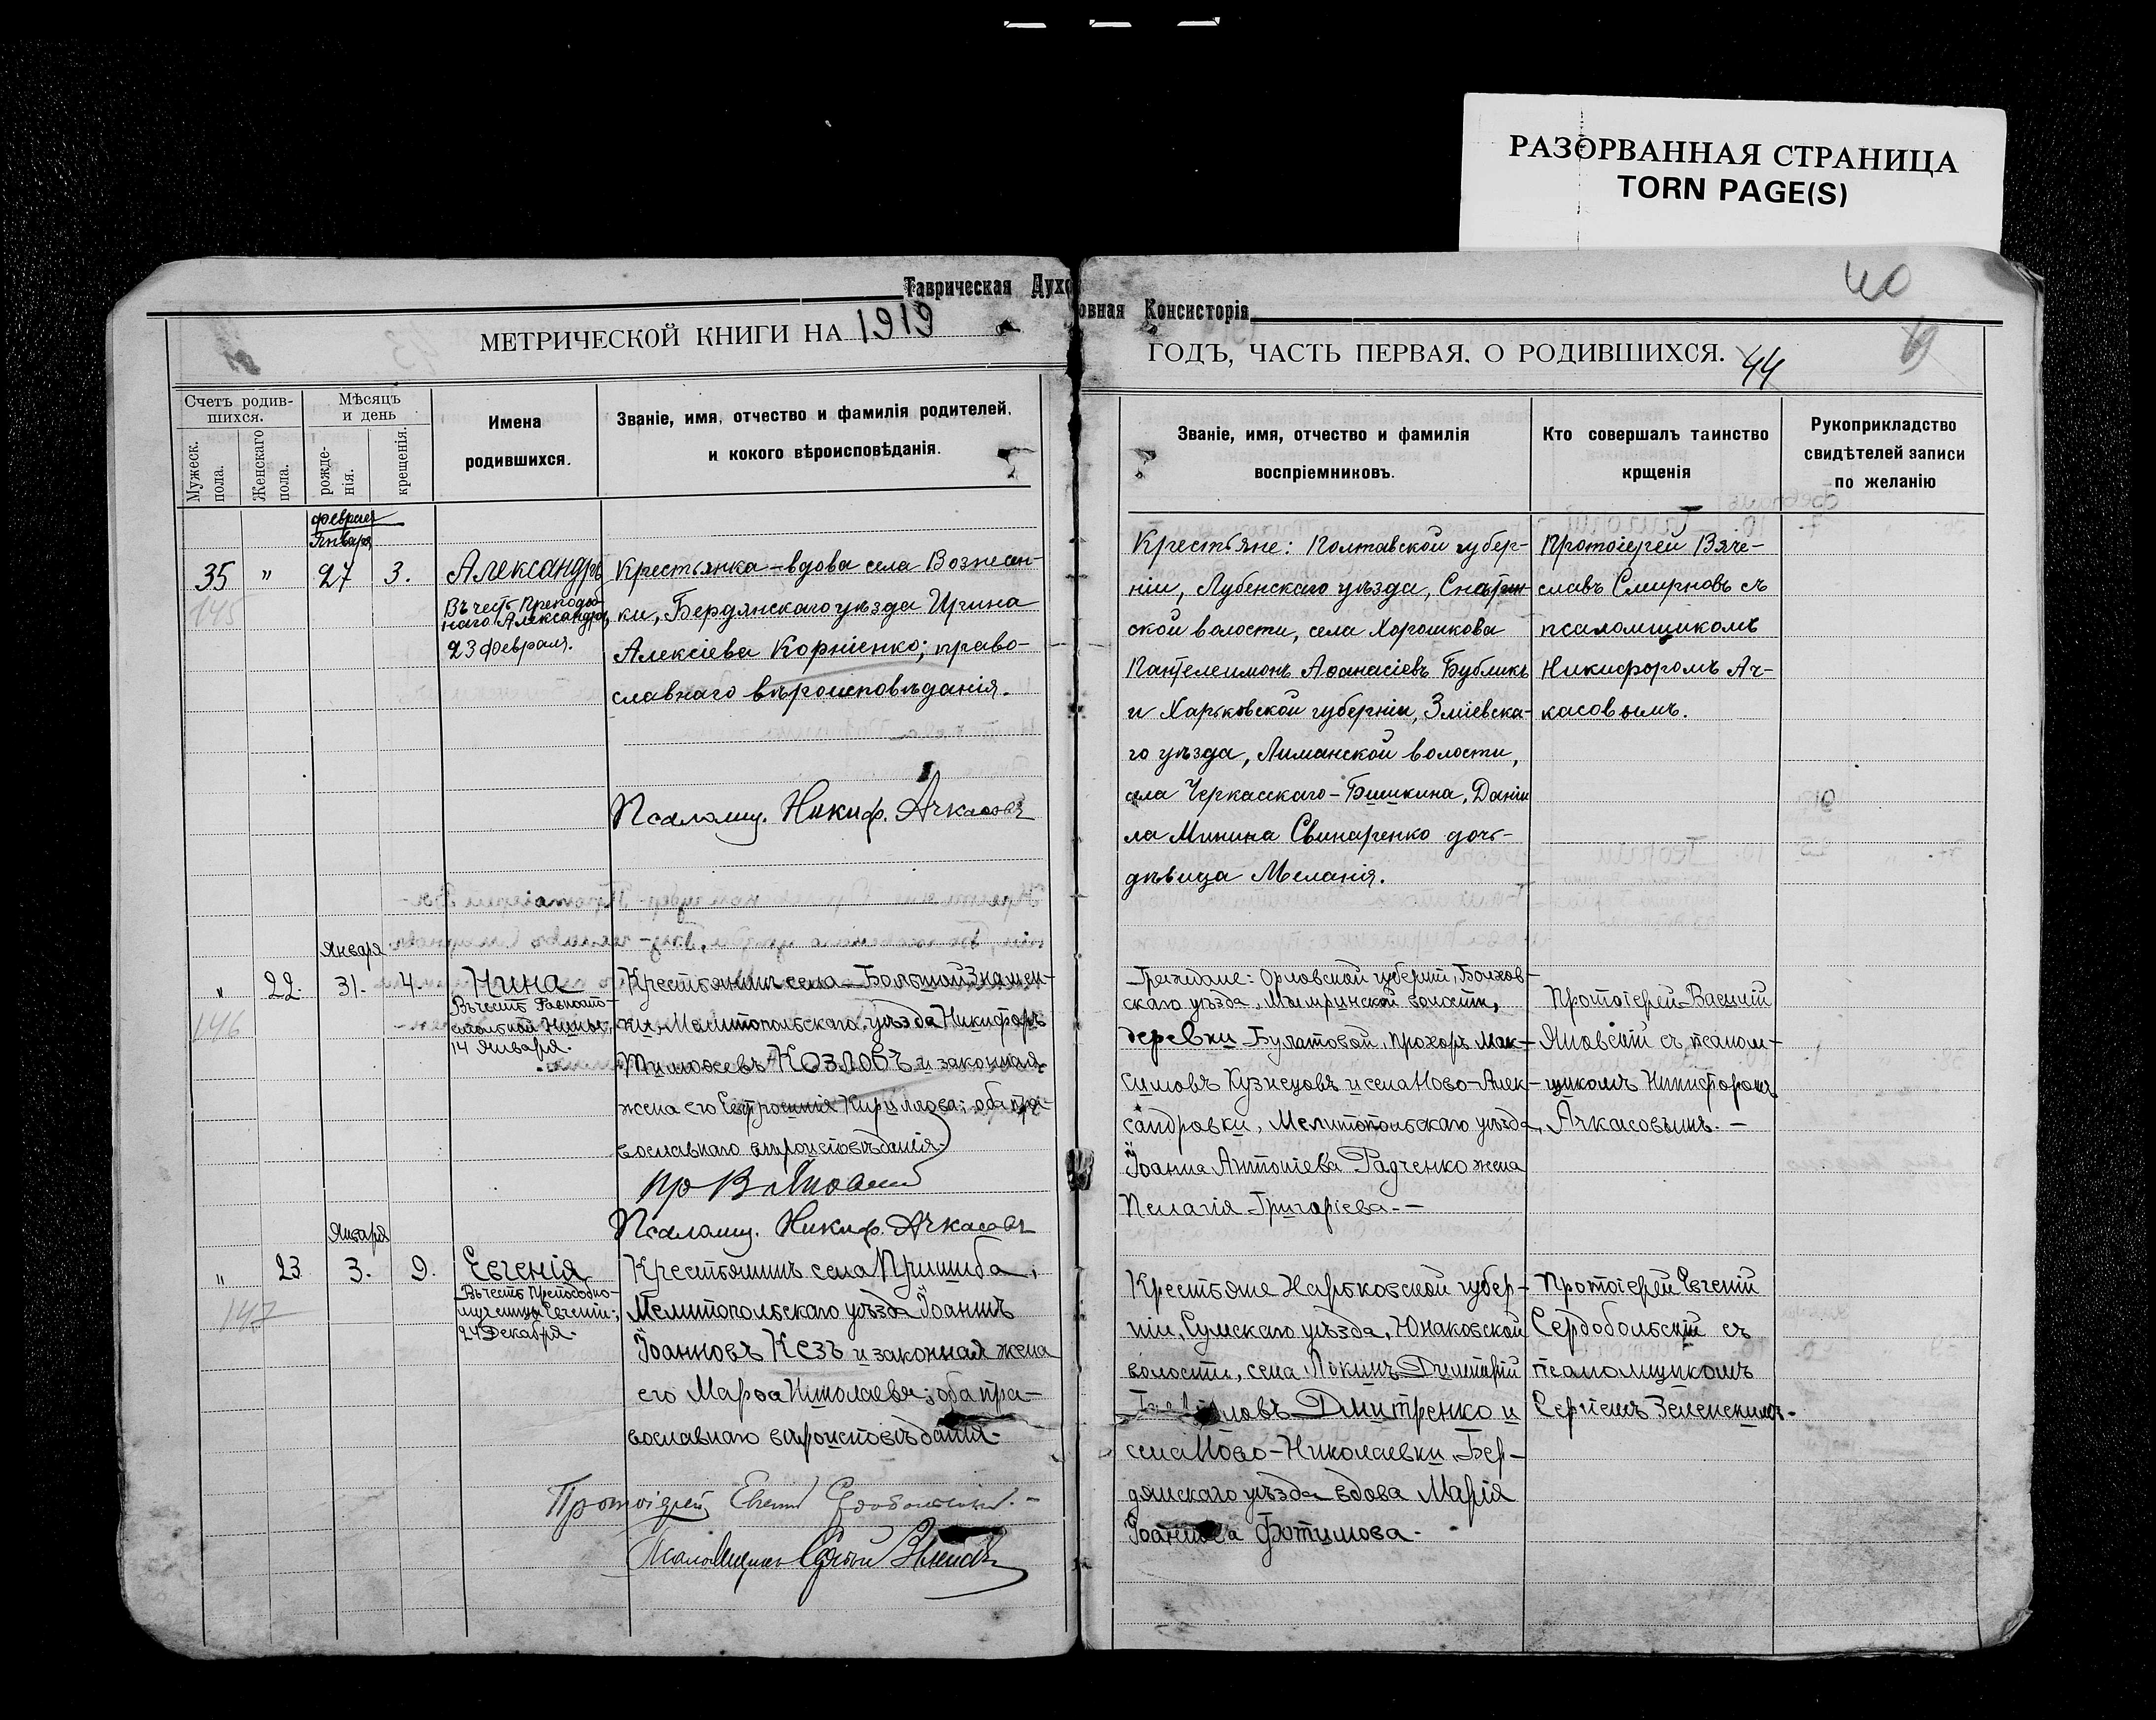 РАЗОРВАННАЯ СТРАНИЦА
TORN PAGE(S)
Таврическая Духовная Консисторія
40
МЕТРИЧЕСКОЙ КНИГИ НА 1919
ГОДЪ, ЧАСТЬ ПЕРВАЯ, О РОДИВШИХСЯ. 44
Счетъ родив-
шихся.
Мужеск.
пола.
Женскаго
пола.
Мѣсяцъ
и день
рожде-
нія.
крещенія.
Имена
родившихся.
Званіе, имя, отчество и фамилія родителей,
и кокого вѣроисповѣданія.
Званіе, имя, отчество и фамилія
воспріемниковъ.
Кто совершалъ таинство
крщенія
Рукоприкладство
свидѣтелей записи
по желанію
февраля
Января
35 " 27 3.
145
Александръ
Въ честь Преподоб-
наго Александра,
23 февраля.
Крестьянка-вдова села Вознесен-
ки, Бердянскаго уѣзда Ирина
Алексіева Корніенко; право-
славнаго вѣроисповѣданія.
Псаломщ. Никиф. Ачкасовъ
Крестьяне: Полтавской губер-
ніи, Лубенскаго уѣзда,
ской волости, села Хорошкова
Пантелеимонъ Аѳанасіевъ Бубликъ
и Харьковской губерніи, Зміевска-
го уѣзда, Лиманской волости,
села Черкасскаго-Бишкина, Даніи
ла Минина Свинаренко дочь-
дѣвица Меланія.
Протоіерей Вяче-
славъ Смирновъ съ
псаломщикомъ
Никифоромъ Ач-
касовымъ.
Января
" 22. 31. 4.
146
Нина
Въ честь Равноапо-
стольной Нины,
14 Января.
Крестьянинъ села Большой Знамен-
ки, Мелитопольскаго уѣзда Никифоръ
Тимоѳеевъ Козловъ и законная
жена его Евфросинія Кириллова; оба пра-
вославнаго вѣроисповѣданія.
Пр В Яновскій
Псаломщ. Никиф. Ачкасовъ
Граждане: Орловской губерніи, Болхов-
скаго уѣзда, волости,
деревни Булатовой, Прохоръ Мак-
симовъ Кузнецовъ и села Ново-Алек-
сандровки, Мелитопольскаго уѣзда,
Іоанна Антоніева Радченко жена
Пелагія Григоріева.-
Протоіерей Василій
Яновскій съ псалом-
щикомъ Никифоромъ
Ачкасовымъ.-
Января
" 23 3. 9.
147
Евгенія
Въ честь Преподобно-
мученицы Евгеніи;
24 Декабря.
Крестьянинъ села Пришиба,
Мелитопольскаго уѣзда Іоаннъ
Іоанновъ Кезъ и законная жена
его Марѳа Николаева; оба пра-
вославнаго вѣроисповѣданія.
Протоіерей Евгеній Сердобольскій.-
Псаломщикъ Сергій
Крестьяне Харьковской губер-
ніи, Сумскаго уѣзда, Юнаковской
волости, села Локни Димитрій
Дмитренко и
села Ново-Николаевки Бер-
дянскаго уѣзда вдова Марія
Іоаннова Фотимова.
Протоіерей Евгеній
Сердобольскій съ
псаломщикомъ
Сергіемъ Зеленскимъ.